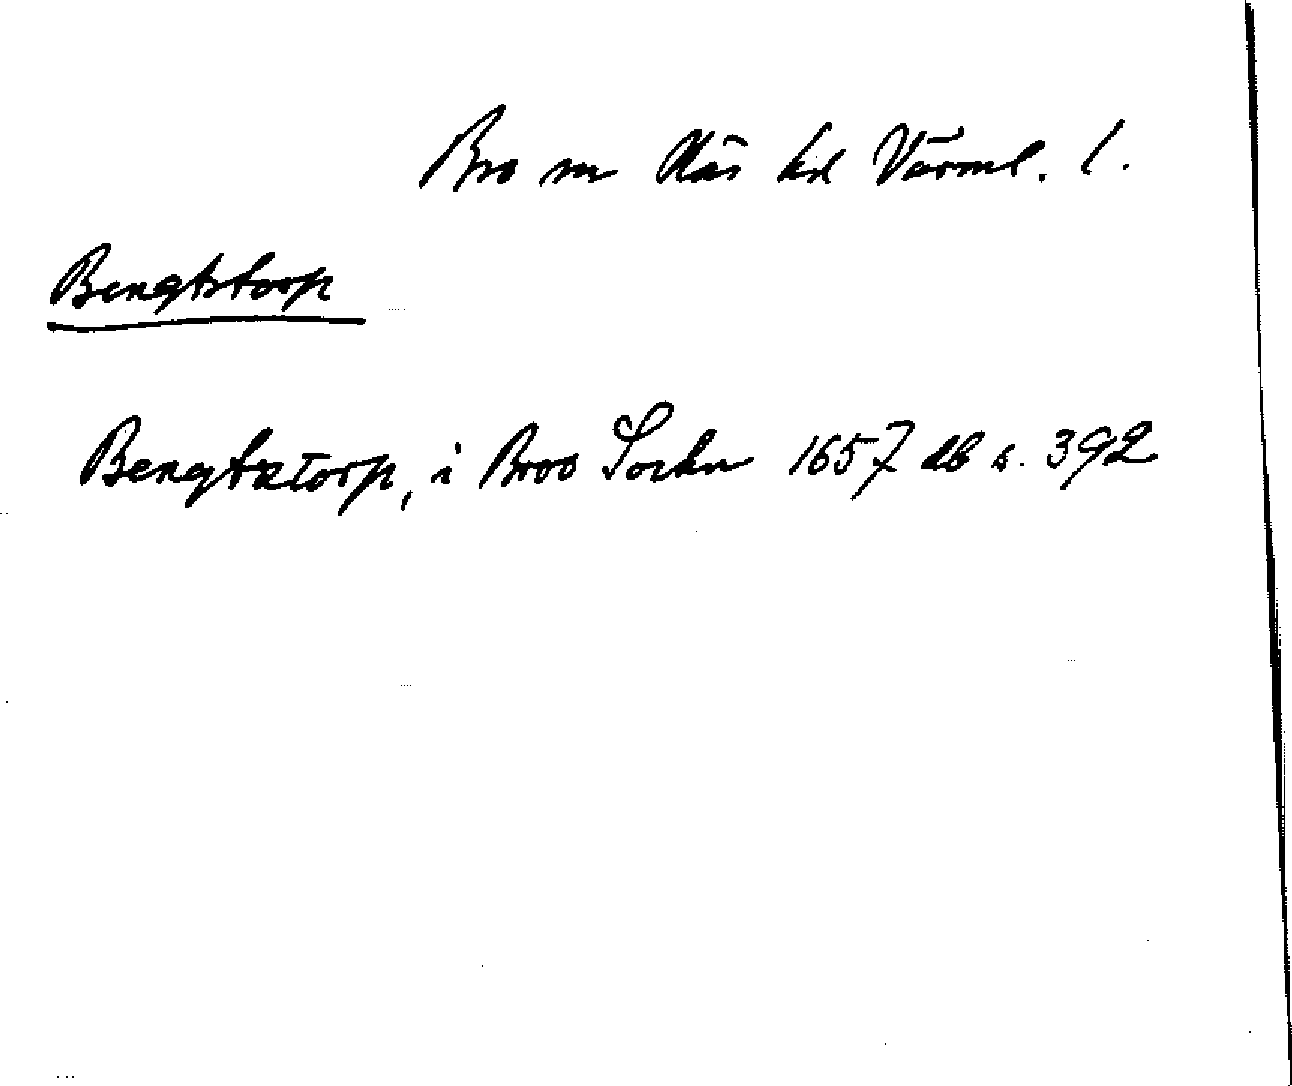 Bro sn Näs hd Värml. l.
Bengtstorp
Bengtztorp, i Broo Sockn 1657 db s. 392